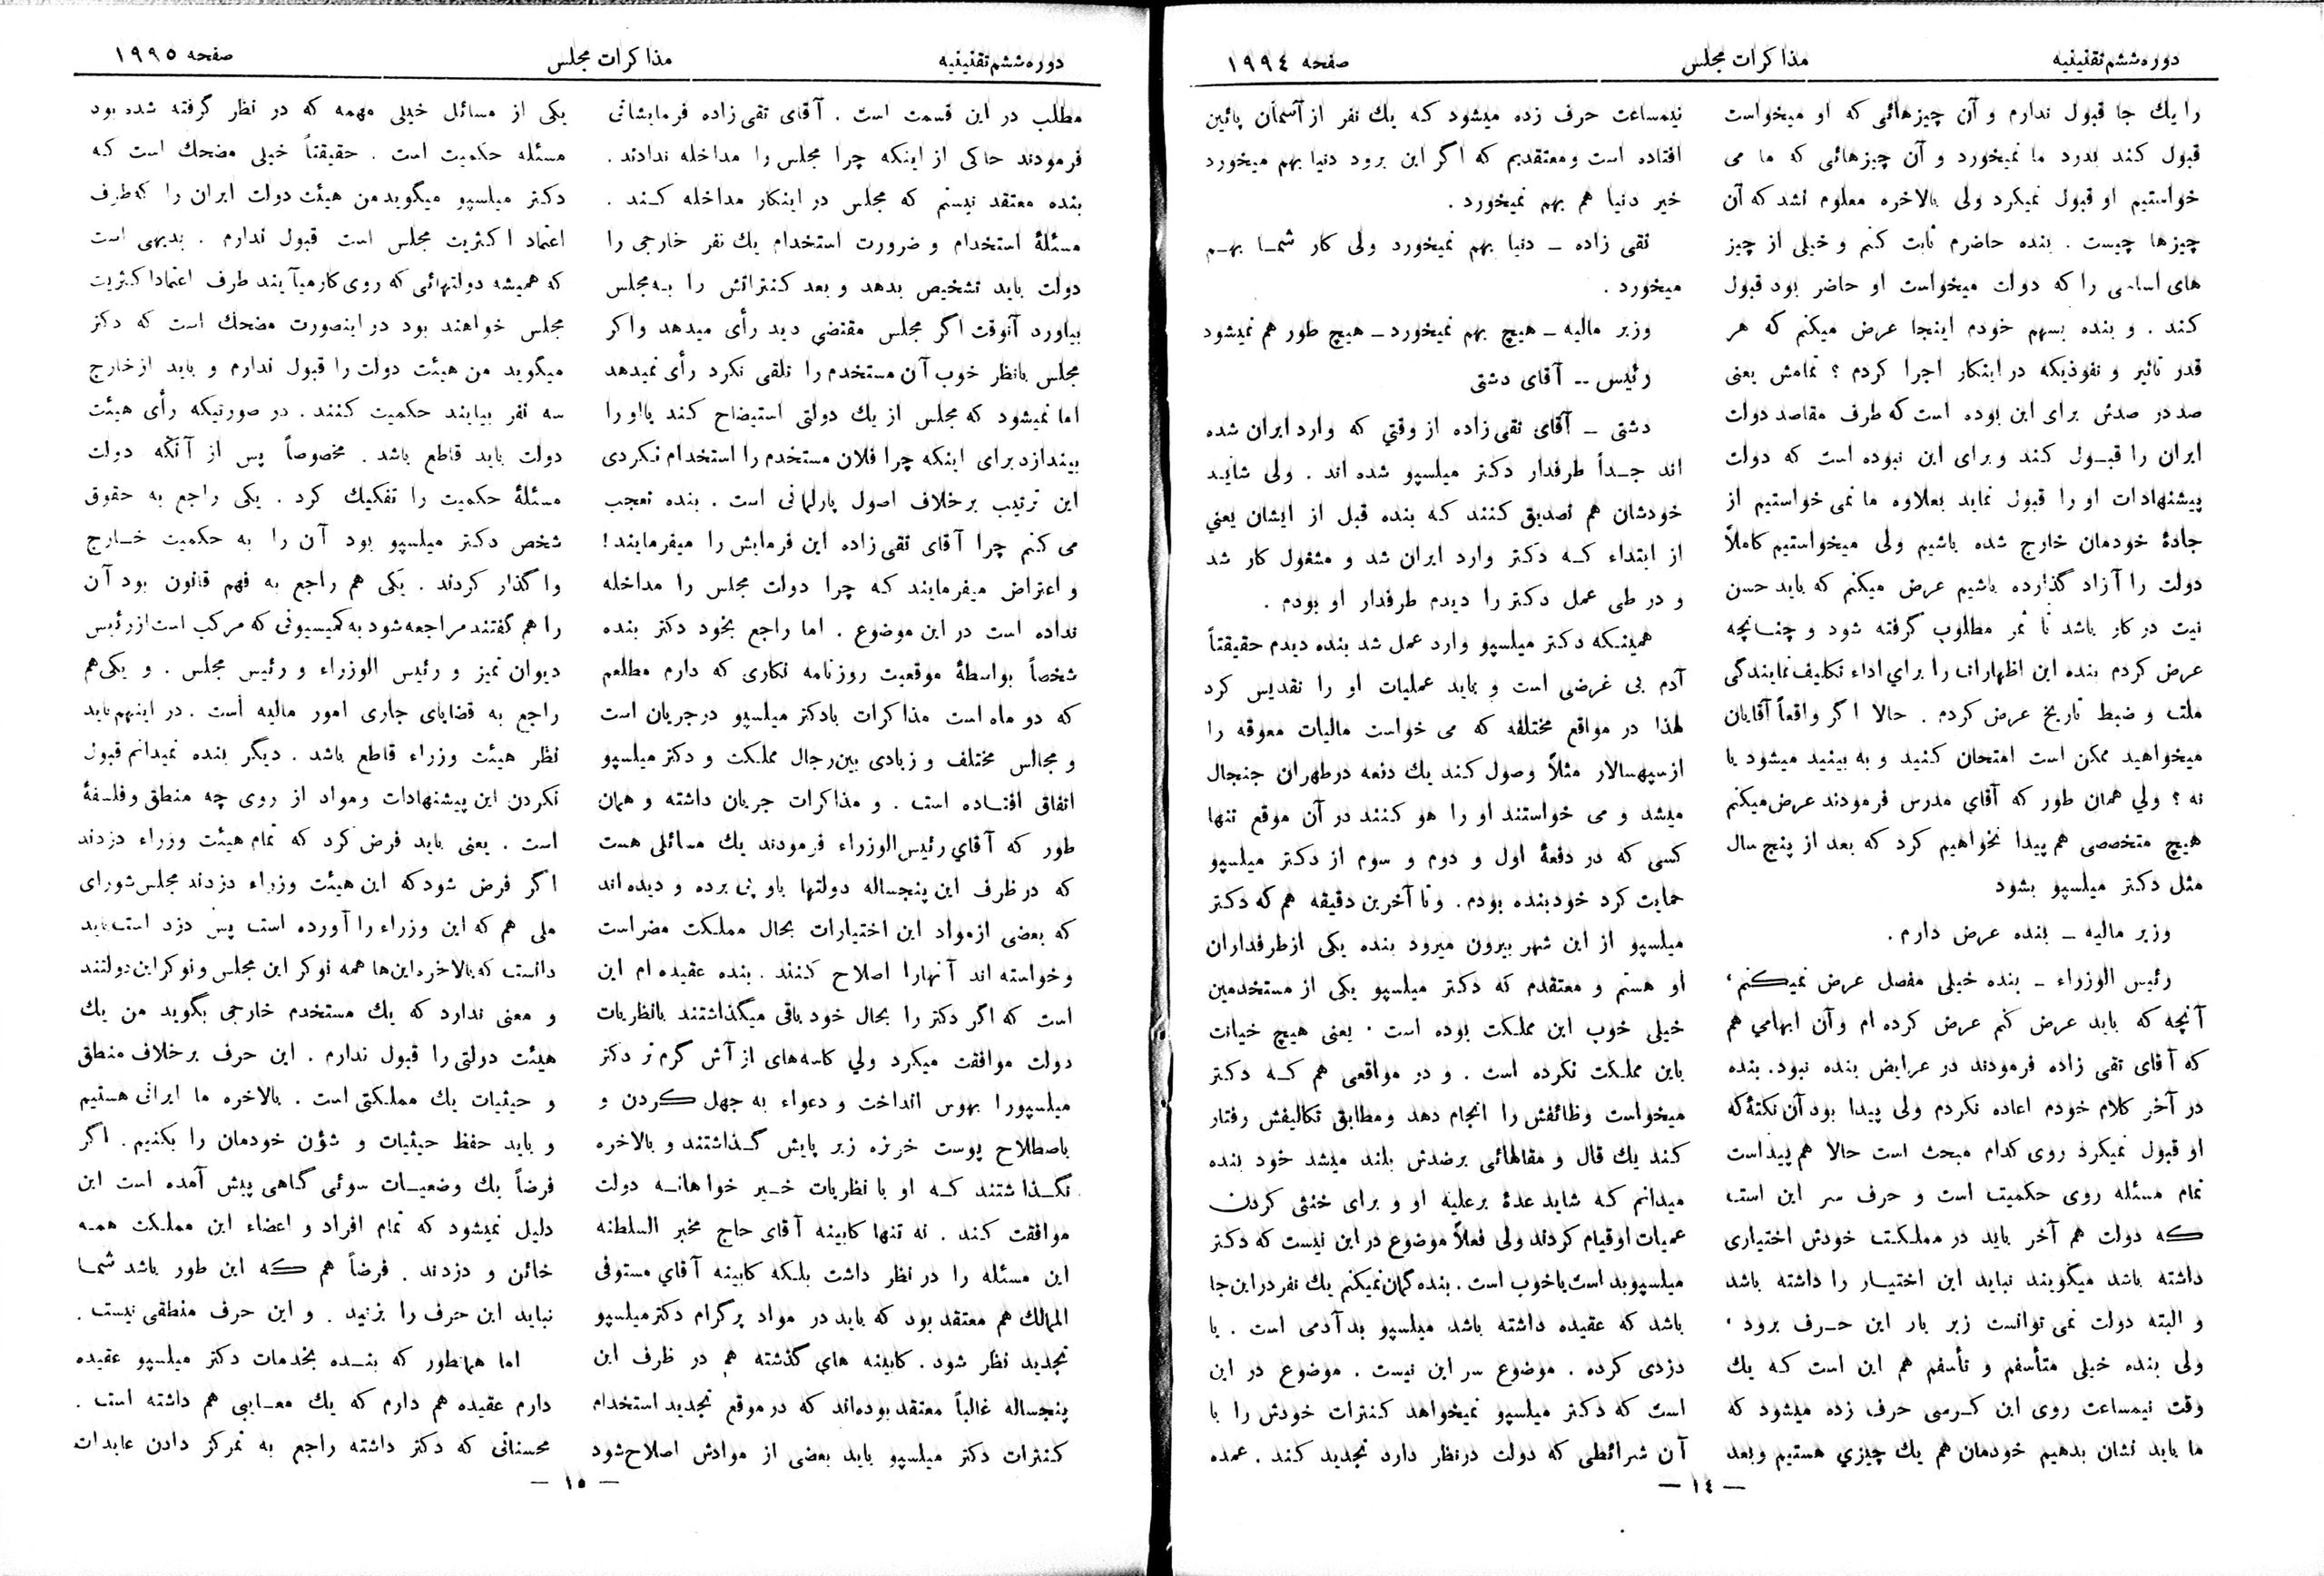 دوره ششم تقنینیه
مذاکرات مجلس
صفحه ۱۹۹٤
را یك جا قبول ندارم و آن چیزهائی که او میخواست
قبول کند بدرد ما نمیخورد و آن چیزهائی که ما می
خواستیم او قبول نمیکرد ولی بالاخره معلوم نشد که آن
چیزها چیست . بنده حاضرم ثابت کنم و خیلی از چیز
های اساسی را که دولت میخواست او حاضر بود قبول
کند . و بنده بسهم خودم اینجا عرض میکنم که هر
قدر تاثیر و نفوذیکه در اینکار اجرا کردم ؟ تمامش یعنی
صد در صدش برای این بوده است که طرف مقاصد دولت
ایران را قبـول کند و برای این نبوده است که دولت
پیشنهادات او را قبول نماید بعلاوه ما نمی خواستیم از
جادهٔ خودمان خارج شده باشیم ولی میخواستیم کاملاً
دولت را آزاد گذارده باشیم عرض میکنم که باید حسن
نیت در کار باشد تا ثمر مطلوب گرفته شود و چنـانچه
عرض کردم بنده این اظهارات را براي اداء تکلیف نمایندگی
ملت و ضبط تاریخ عرض کردم . حالا اگر واقعاً آقایان
میخواهید ممکن است امتحان کنید و به بینید میشود یا
نه ؟ ولي همان طور که آقاي مدرس فرمودند عرض میکنم
هیچ متخصصی هم پیدا نخواهیم کرد که بعد از پنج سال
مثل دکتر میلسپو بشود
وزیر مالیه ـ بنده عرض دارم .
رئیس الوزراء ـ بنده خیلی مفصل عرض نمیکنم ،
آنچه که باید عرض کنم عرض کرده ام و آن ابهامي هم
که آقای تقی زاده فرمودند در عرایض بنده نبود. بنده
در آخر کلام خودم اعاده نکردم ولی پیدا بود آن نکتهٔ که
او قبول نمیکرد روی کدام مبحث است حالا هم پیداست
تمام مسئله روی حکمیت است و حرف سر این است
که دولت هم آخر باید در مملکت خودش اختیاری
داشته باشد میگویند نباید این اختیـار را داشته باشد
و البته دولت نمی توانست زیر بار این حـرف برود ،
ولی بنده خیلی متأسفم و تأسفم هم این است کـه یك
وقت نیمساعت روی این کـرسی حرف زده میشود که
ما باید نشان بدهیم خودمان هم یك چیزي هستیم وبعد
نیمساعت حرف زده میشود که یك نفر از آسمان پائین
افتاده است ومعتقدیم که اگر این برود دنیا بهم میخورد
خیر دنیا هم بهم نمیخورد .
تقی زاده ـ دنیا بهم نمیخورد ولی کار شمـا بهـم
میخورد .
وزیر مالیه ـ هیچ بهم نمیخورد ـ هیچ طور هم نمیشود
رئیس -- آقای دشتی
دشتی ـ آقای تقی زاده از وقتي که وارد ایران شده
اند جـداً طرفدار دکتر میلسپو شده اند . ولی شایـد
خودشان هم تصدیق کنند کـه بنده قبل از ایشان یعني
از ابتداء کـه دکتر وارد ایران شد و مشغول کار شد
و در طی عمل دکتر را دیدم طرفدار او بودم .
همینـکه دکتر میلسپو وارد عمل شد بنده دیدم حقیقتاً
آدم بی غرضی است و باید عملیات او را تقدیس کرد
لهذا در مواقع مختلفه که می خواست مالیات معوقه را
از سپهسالار مثلاً وصول کند یك دفعه در طهران جنجال
میشد و می خواستند او را هو کنند در آن موقع تنها
کسی که در دفعهٔ اول و دوم و سوم از دکتر میلسپو
حمایت کرد خود بنده بودم . و تا آخرین دقیقه هم که دکتر
میلسپو از این شهر بیرون میرود بنده یکی از طرفداران
او هستم و معتقدم که دکتر میلسپو یکی از مستخدمین
خیلی خوب این مملکت بوده است ٠ یعنی هیچ خیانت
باین مملکت نکرده است . و در مواقعی هم کـه دکتر
میخواست وظائفش را انجام دهد ومطابق تکالیفش رفتار
کند یك قال و مقالهائی برضدش بلند میشد خود بنده
میدانم کـه شاید عدهٔ برعلیه او و برای خنثی کردن
عمیات او قیام کردند ولی فعلاً موضوع در این نیست که دکتر
میلسپو بد است یا خوب است . بنده گمان نمیکنم یك نفر در این جا
باشد که عقیده داشته باشد میلسپو بد آدمی است . یا
دزدی کرده . موضوع سر این نیست . موضوع در این
است که دکتر میلسپو نمیخواهد کنترات خودش را با
آن شرائطی که دولت در نظر دارد تجدید کند . عمده
— ۱٤ —
دوره ششم تقنینیه
مذاکرات مجلس
صفحه ۱۹۹٥
مطلب در این قسمت است . آقای تقی زاده فرمایشاتی
فرمودند حاکی از اینکه چرا مجلس را مداخله ندادند .
بنده معتقد نیستم که مجلس در اینکار مداخله کـند .
مسئلهٔ استخدام و ضرورت استخدام یك نفر خارجی را
دولت باید تشخیص بدهد و بعد کنتراتش را بـه مجلس
بیاورد آنوقت اگر مجلس مقتضی دید رأی میدهد واکر
مجلس بانظر خوب آن مستخدم را تلقی نکرد رأی نمیدهد
اما نمیشود که مجلس از یك دولتی استیضاح کند یا او را
بیندازد برای اینکه چرا فلان مستخدم را استخدام نکردی
این ترتیب برخلاف اصول پارلمانی است . بنده تعجب
می کنم چرا آقای تقی زاده این فرمایش را میفرمایند !
و اعتراض میفرمایند کـه چرا دولت مجلس را مداخله
نداده است در این موضوع . اما راجع بخود دکتر بنده
شخصاً بواسطهٔ موقعیت روزنامه نکاری که دارم مطلعم
که دو ماه است مذاکرات بادکتر میلسپو در جریان است
و مجالس مختلف و زیادی بین رجال مملکت و دکتر میلسپو
اتفاق افتـاده است . و مذاکرات جریان داشته و همان
طور که آقاي رئیس الوزراء فرمودند یك مسائلی هست
که در ظرف این پنجساله دولتها باو پی برده و دیده اند
که بعضی از مواد این اختیارات بحال مملکت مضر است
و خواسته اند آنها را اصلاح کنند . بنده عقیده ام این
است که اگر دکتر را بحال خود باقی میگذاشتند بانظریات
دولت موافقت میکرد ولي کاسه های از آش گرم تر دکتر
میلسپو را بهوس انداخت و دعواء به جهل کردن و
باصطلاح پوست خربزه زیر پایش گـذاشتند و بالاخره
نگـذاشتند کـه او با نظریات خـیر خواهانـه دولت
موافقت کـند . نه تنها کابینه آقای حاج مخبر السلطنه
این مسئله را در نظر داشت بلـکه کابینه آقاي مستوفی
الممالك هم معتقد بود که باید در مواد پرگرام دکتر میلسپو
تجدید نظر شود . کابینه هاي گذشته هم در ظرف این
پنجساله غالباً معتقد بوده اند که در موقع تجدید استخدام
کنترات دکتر میلسپو باید بعضی از موادش اصلاح شود
یکی از مسائل خیلی مهمه که در نظر گرفته شده بود
مسئله حکمیت است . حقیقتاً خیلی مضحك است کـه
دکتر میلسپو میگوید من هیئت دولت ایران را که طرف
اعتماد اکثریت مجلس است قبول ندارم . بدیهی است
که همیشه دولتهائی که روی کار میآیند طرف اعتماد اکثریت
مجلس خواهند بود در اینصورت مضحك است که دکتر
میگوید من هیئت دولت را قبول ندارم و باید از خارج
سه نفر بیایند حکمیت کنند . در صورتیکه رأی هیئت
دولت باید قاطع باشد . مخصوصاً پس از آنکه دولت
مسئلهٔ حکمیت را تفکیك کرد . یکی راجع به حقوق
شخص دکتر میلسپو بود آن را به حکمیت خـارج
واگذار کردند . یکی هم راجع به فهم قانون بود آن
را هم گفتند مراجعه شود به کمیسیونی که مرکب است از رئیس
دیوان تمیز و رئیس الوزراء و رئیس مجلس . و یکی هم
راجع به قضایای جاری امور مالیه است . در اینهم باید
نظر هیئت وزراء قاطع باشد . دیگر بنده نمیدانم قبول
نکردن این پیشنهادات ومواد از روی چه منطق وفلسفهٔ
است . یعنی باید فرض کرد که تمام هیئت وزراء دزدند
اگر فرض شود که این هیئت وزراء دزدند مجلس شورای
ملی هم که این وزراء را آورده است پس دزد است باید
دانست که بالاخره این ها همه نوکر این مجلس و نوکر این دولتند
و معنی ندارد که یك مستخدم خارجی بگوید من یك
هیئت دولتی را قبول ندارم . این حرف برخلاف منطق
و حیثیات یك مملـکتی است . بالاخره ما ایرانی هستیم
و باید حفظ حیثیات و شؤن خودمان را بکنیم . اگر
فرضاً یك وضعیـات سوئی گـاهی پیش آمده است این
دلیل نمیشود که تمام افراد و اعضاء این مملـکت همـه
خائن و دزدند . فرضاً هم که این طور باشد شمـا
نباید این حرف را بزنید . و این حرف منطقی نیست .
اما همانطور که بنـده بخدمات دکتر میلسپو عقیده
دارم عقیده هم دارم که یك معـایبی هم داشته است .
محسناتی که دکتر داشته راجع به تمرکز دادن عایدات
— ۱٥ —